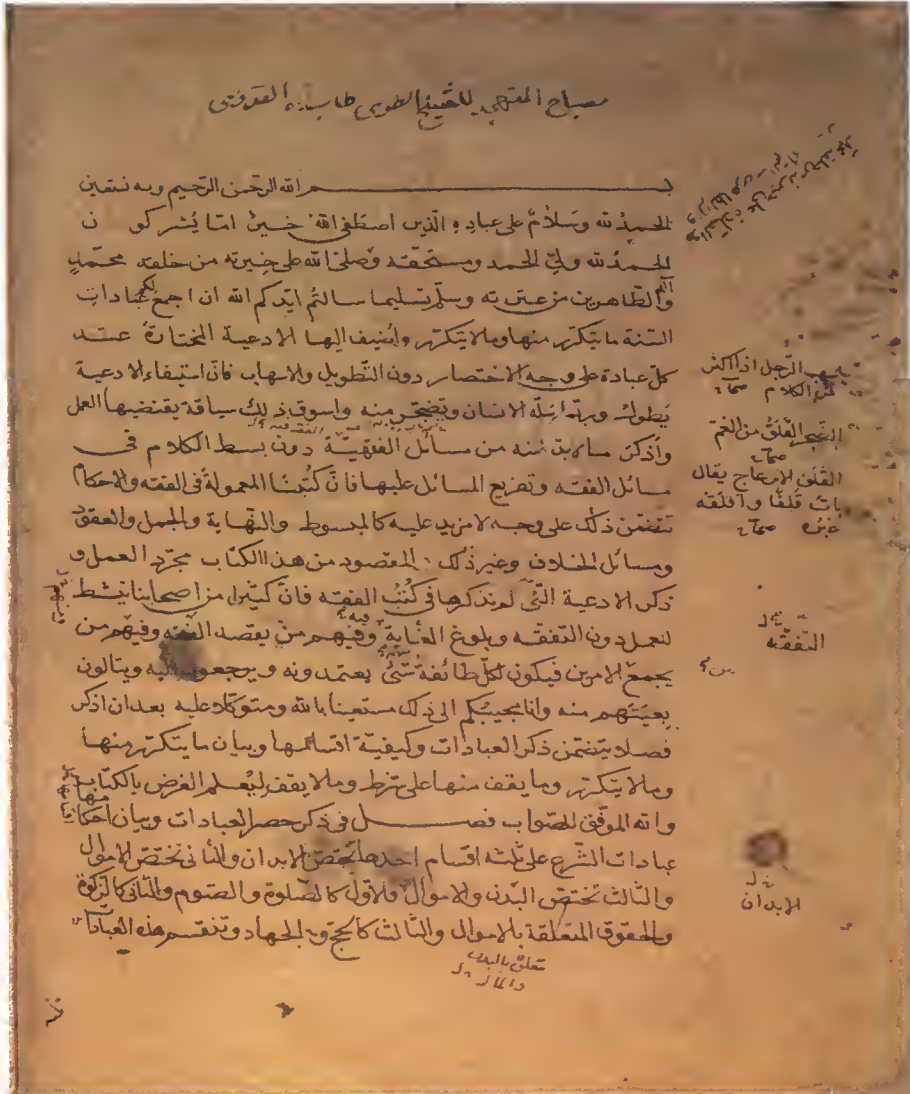 مصباح المتهجد للشيخ الطوسي طاب
بسم الله الرحمن الرحيم وبه نستعين
الحمد لله وسلام على عباده الذين اصطفى الله خير اما يشركون
الحمد لله ولي الحمد ومستحقه وصلى الله على خيرته من خلقه محمد
وآله الطاهرين من عترته وسلم تسليما سالتم ايدكم الله ان اجمع لكم عبادات
السنة ما يتكرر منها وما لا يتكرر واضيف اليها الادعية المختارة عند
كل عبادة على وجه الاختصار دون التطويل والاسهاب فان استيفاء الادعية
يطول وربما ملّه الانسان وتضجر منه واسوق ذلك سياقة يقتضيها العمل
واذكر ما لا بد منه من مسائل الفقهية دون بسط الكلام في
مسائل الفقه وتفريع المسائل عليها فان كتبنا المعمولة في الفقه والاحكام
تتضمن ذلك على وجه لا مزيد عليه كالمبسوط والنهاية والجمل والعقود
ومسائل الخلاف وغير ذلك المقصود من هذا الكتاب مجرد العمل و
ذكر الادعية التي لم نذكرها في كتب الفقه فان كثيرا من اصحابنا ينشط
للعمل دون التفقه وبلوغ الغاية فيه وفيهم من يقصد الفقه وفيهم من
يجمع الامرين فيكون لكل طائفة شئ يعتمدونه ويرجعون اليه وينالون
بغيتهم منه وانا مجيبكم الى ذلك مستعينا بالله ومتوكلا عليه بعد ان اذكر
فصلا يتضمن ذكر العبادات وكيفية اقسامها وبيان ما يتكرر منها
وما لا يتكرر وما يقف منها على شرط وما لا يقف ليعلم الغرض بالكتاب
والله الموفق للصواب فصل في ذكر حصر العبادات وبيان احكامها
عبادات الشرع على ثلثة اقسام احدها تختص الابدان والثاني تختص الاموال
والثالث تختص البدن والاموال فالاول كالصلوة والصوم والثاني كالزكوة
والحقوق المتعلقة بالاموال والثالث كالحج والجهاد وتنقسم هذه العبادات
الرجل اذا اكثر
من الكلام صحاح
الضجر القلق من الغم
صحاح
القلق الانزعاج يقال
بات قلقا واقلقه
غيره صحاح
التفقه
الابدان
تتعلق بالبدن
والمال